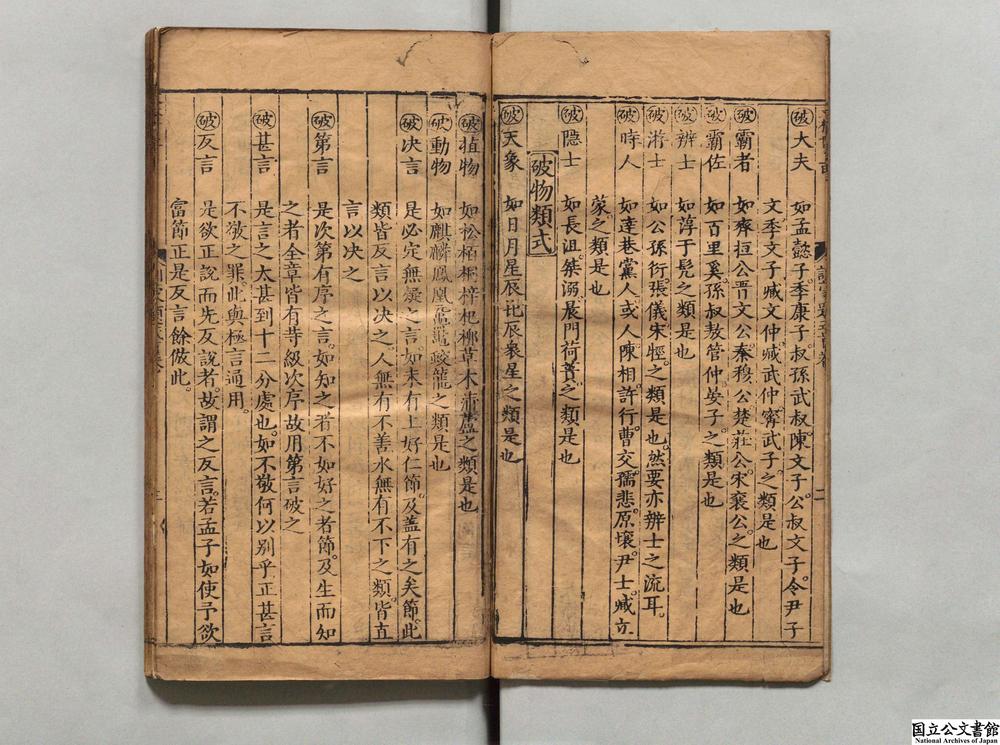 破大夫 如孟懿子季康子叔孫武叔陳文子公叔文子令尹子
文季文子臧文仲臧武仲甯武子之類是也
破霸者 如齊桓公晋文公秦穆公楚莊公宋襄公之類是也
破霸佐 如百里奚孫叔敖管仲晏子之類是也
破辨士 如淳于髡之類是也
破游士 如公孫衍張儀宋牼之類是也然要亦辨士之流耳
破時人 如達巷黨人或人陳相許行曹交孺悲原壤尹士臧亢
蒙之類是也
破隠士 如長沮桀溺晨門荷蕢之類是也
破物類式
破天象 如日月星辰北辰衆星之類是也
破植物 如松栢桐梓杞栁草木蒲蘆之類是也
破動物 如麒麟鳳凰黿鼉蛟龍之類是也
破决言 是必定無疑之言如未有上好仁節及蓋有之矣節此
類皆反言以决之人無有不善水無有不下之類皆直
言以决之
破第言 是次第有序之言如知之者不如好之者節及生而知
之者全章皆有等級次序故用第言破之
破甚言 是言之太甚到十二分處也如不敬何以别乎正甚言
不敬之罪此與極言通用
破反言 是欲正說而先反說者故謂之反言若孟子如使予欲
富節正是反言餘倣此
二
三
国立公文書館
National Archives of Japan